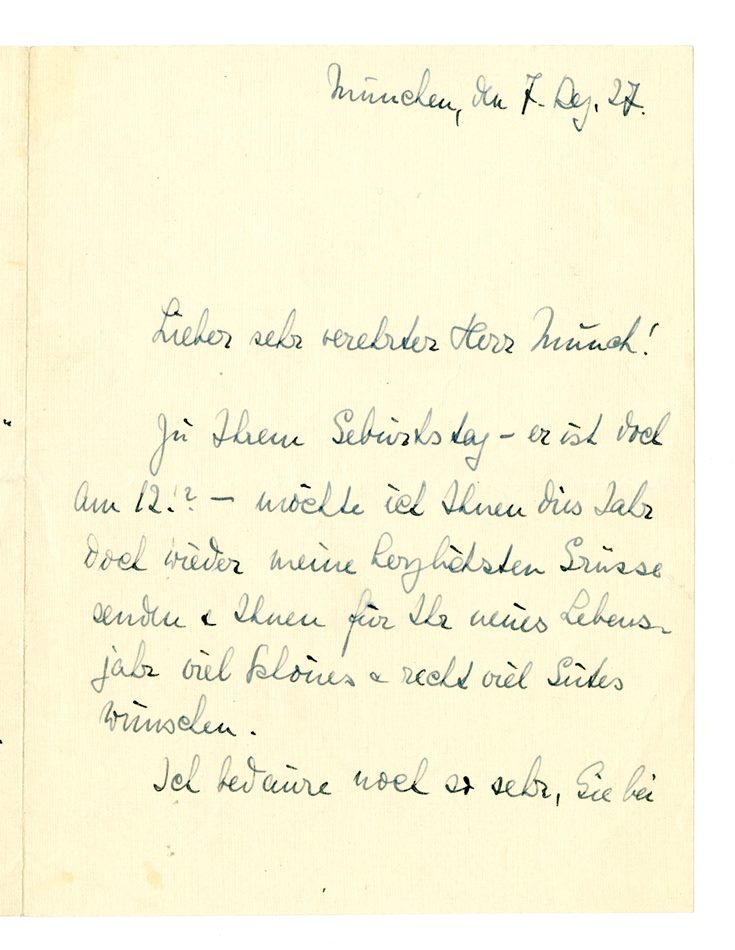 München, den 7. Dez. 27.
Lieber sehr verehrter Herr Munch!
Zu Ihrem Geburtstag – er ist doch
am 12.!? – möchte ich Ihnen dies Jahr
doch wieder meine herzlichsten Grüsse
senden & Ihnen für Ihr neues Lebens-
jahr viel Schönes & recht viel Gutes
wünschen.
Ich bedaure noch so sehr, Sie bei